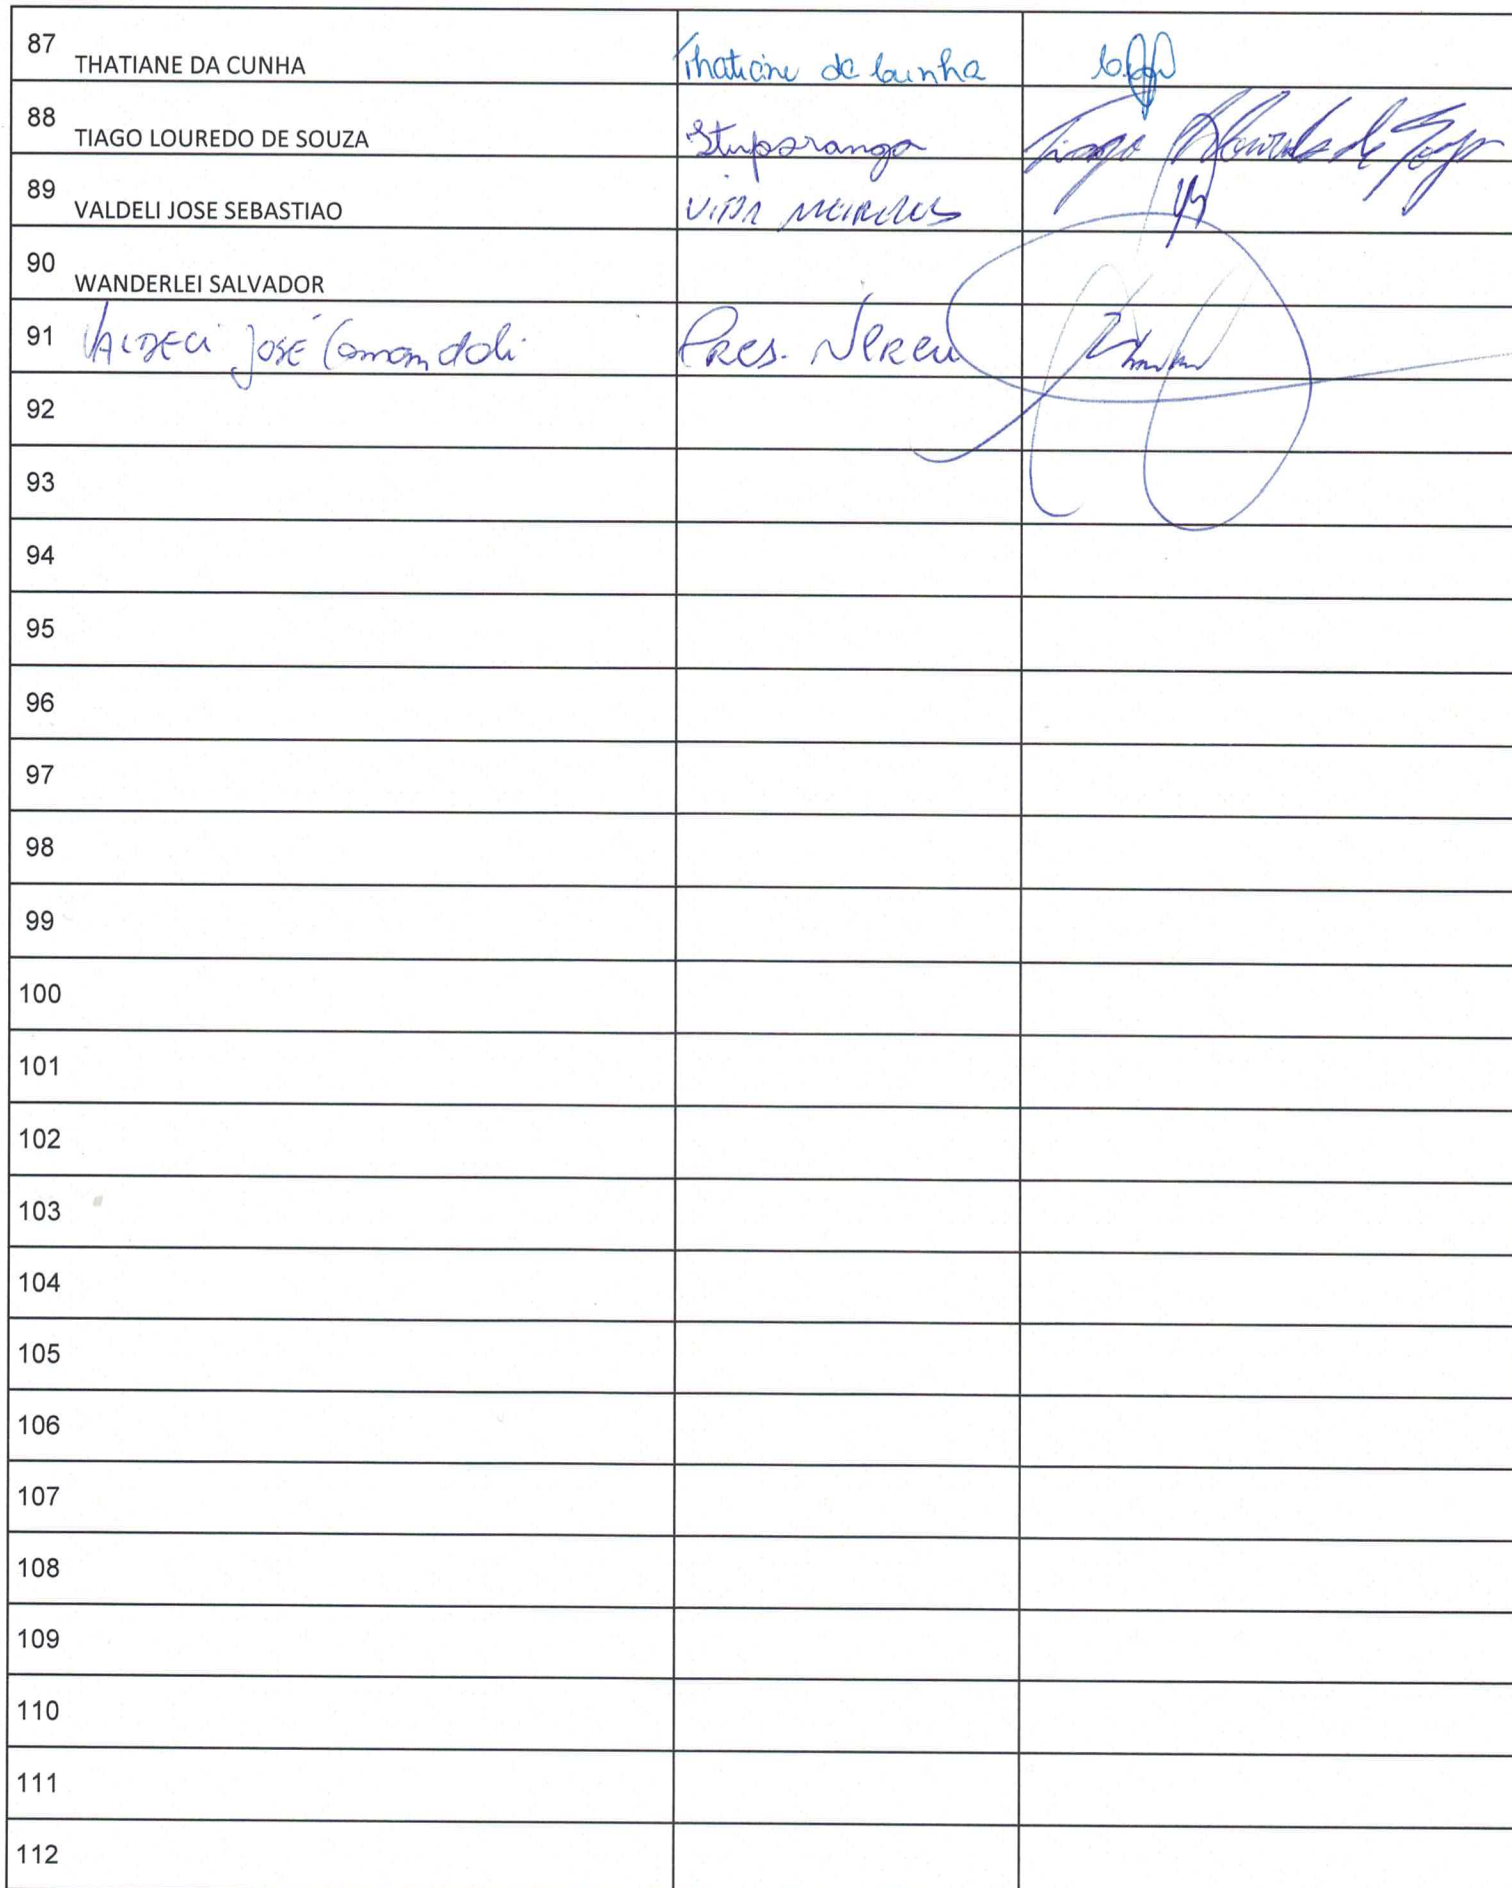 87 THATIANE DA CUNHA Thatiane da Cunha
88 TIAGO LOUREDO DE SOUZA Ituporanga Tiago Louredo de Souza
89 VALDELI JOSE SEBASTIAO VITOR MEIRELES
90 WANDERLEI SALVADOR
91 VALDECI JOSÉ Comandoli PRES. NEREU
92
93
94
95
96
97
98
99
100
101
102
103
104
105
106
107
108
109
110
111
112